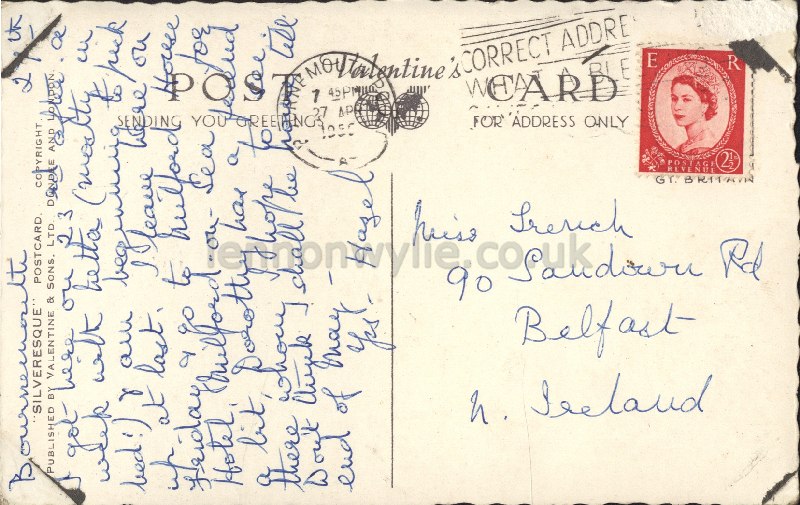 Bournemouth 27th
I got here on 23 & after a
week with Letta (mostly in
bed!) I am beginning to pick
up at last. I leave here on
Friday & go to Milford House
Hotel, Milford-on-Sea for
a bit. Dorothy has a friend
there whom I hope to see.
Don't think I shall be home till
end of May -
Yrs. Hazel
"SILVERESQUE" POSTCARD. COPYRIGHT.
PUBLISHED BY VALENTINE & SONS. LTD. DUNDEE AND LONDON.
POST Valentine's CARD
SENDING YOU GREETINGS FOR ADDRESS ONLY
BOURNEMOUTH
7 45PM
27 APR
A
CORRECT ADDRE
WHAT A BLE
E R
POSTAGE
REVENUE
2½
GT. BRITAIN
Miss French
90 Sandown Rd
Belfast
N. Ireland
lennonwylie.co.uk